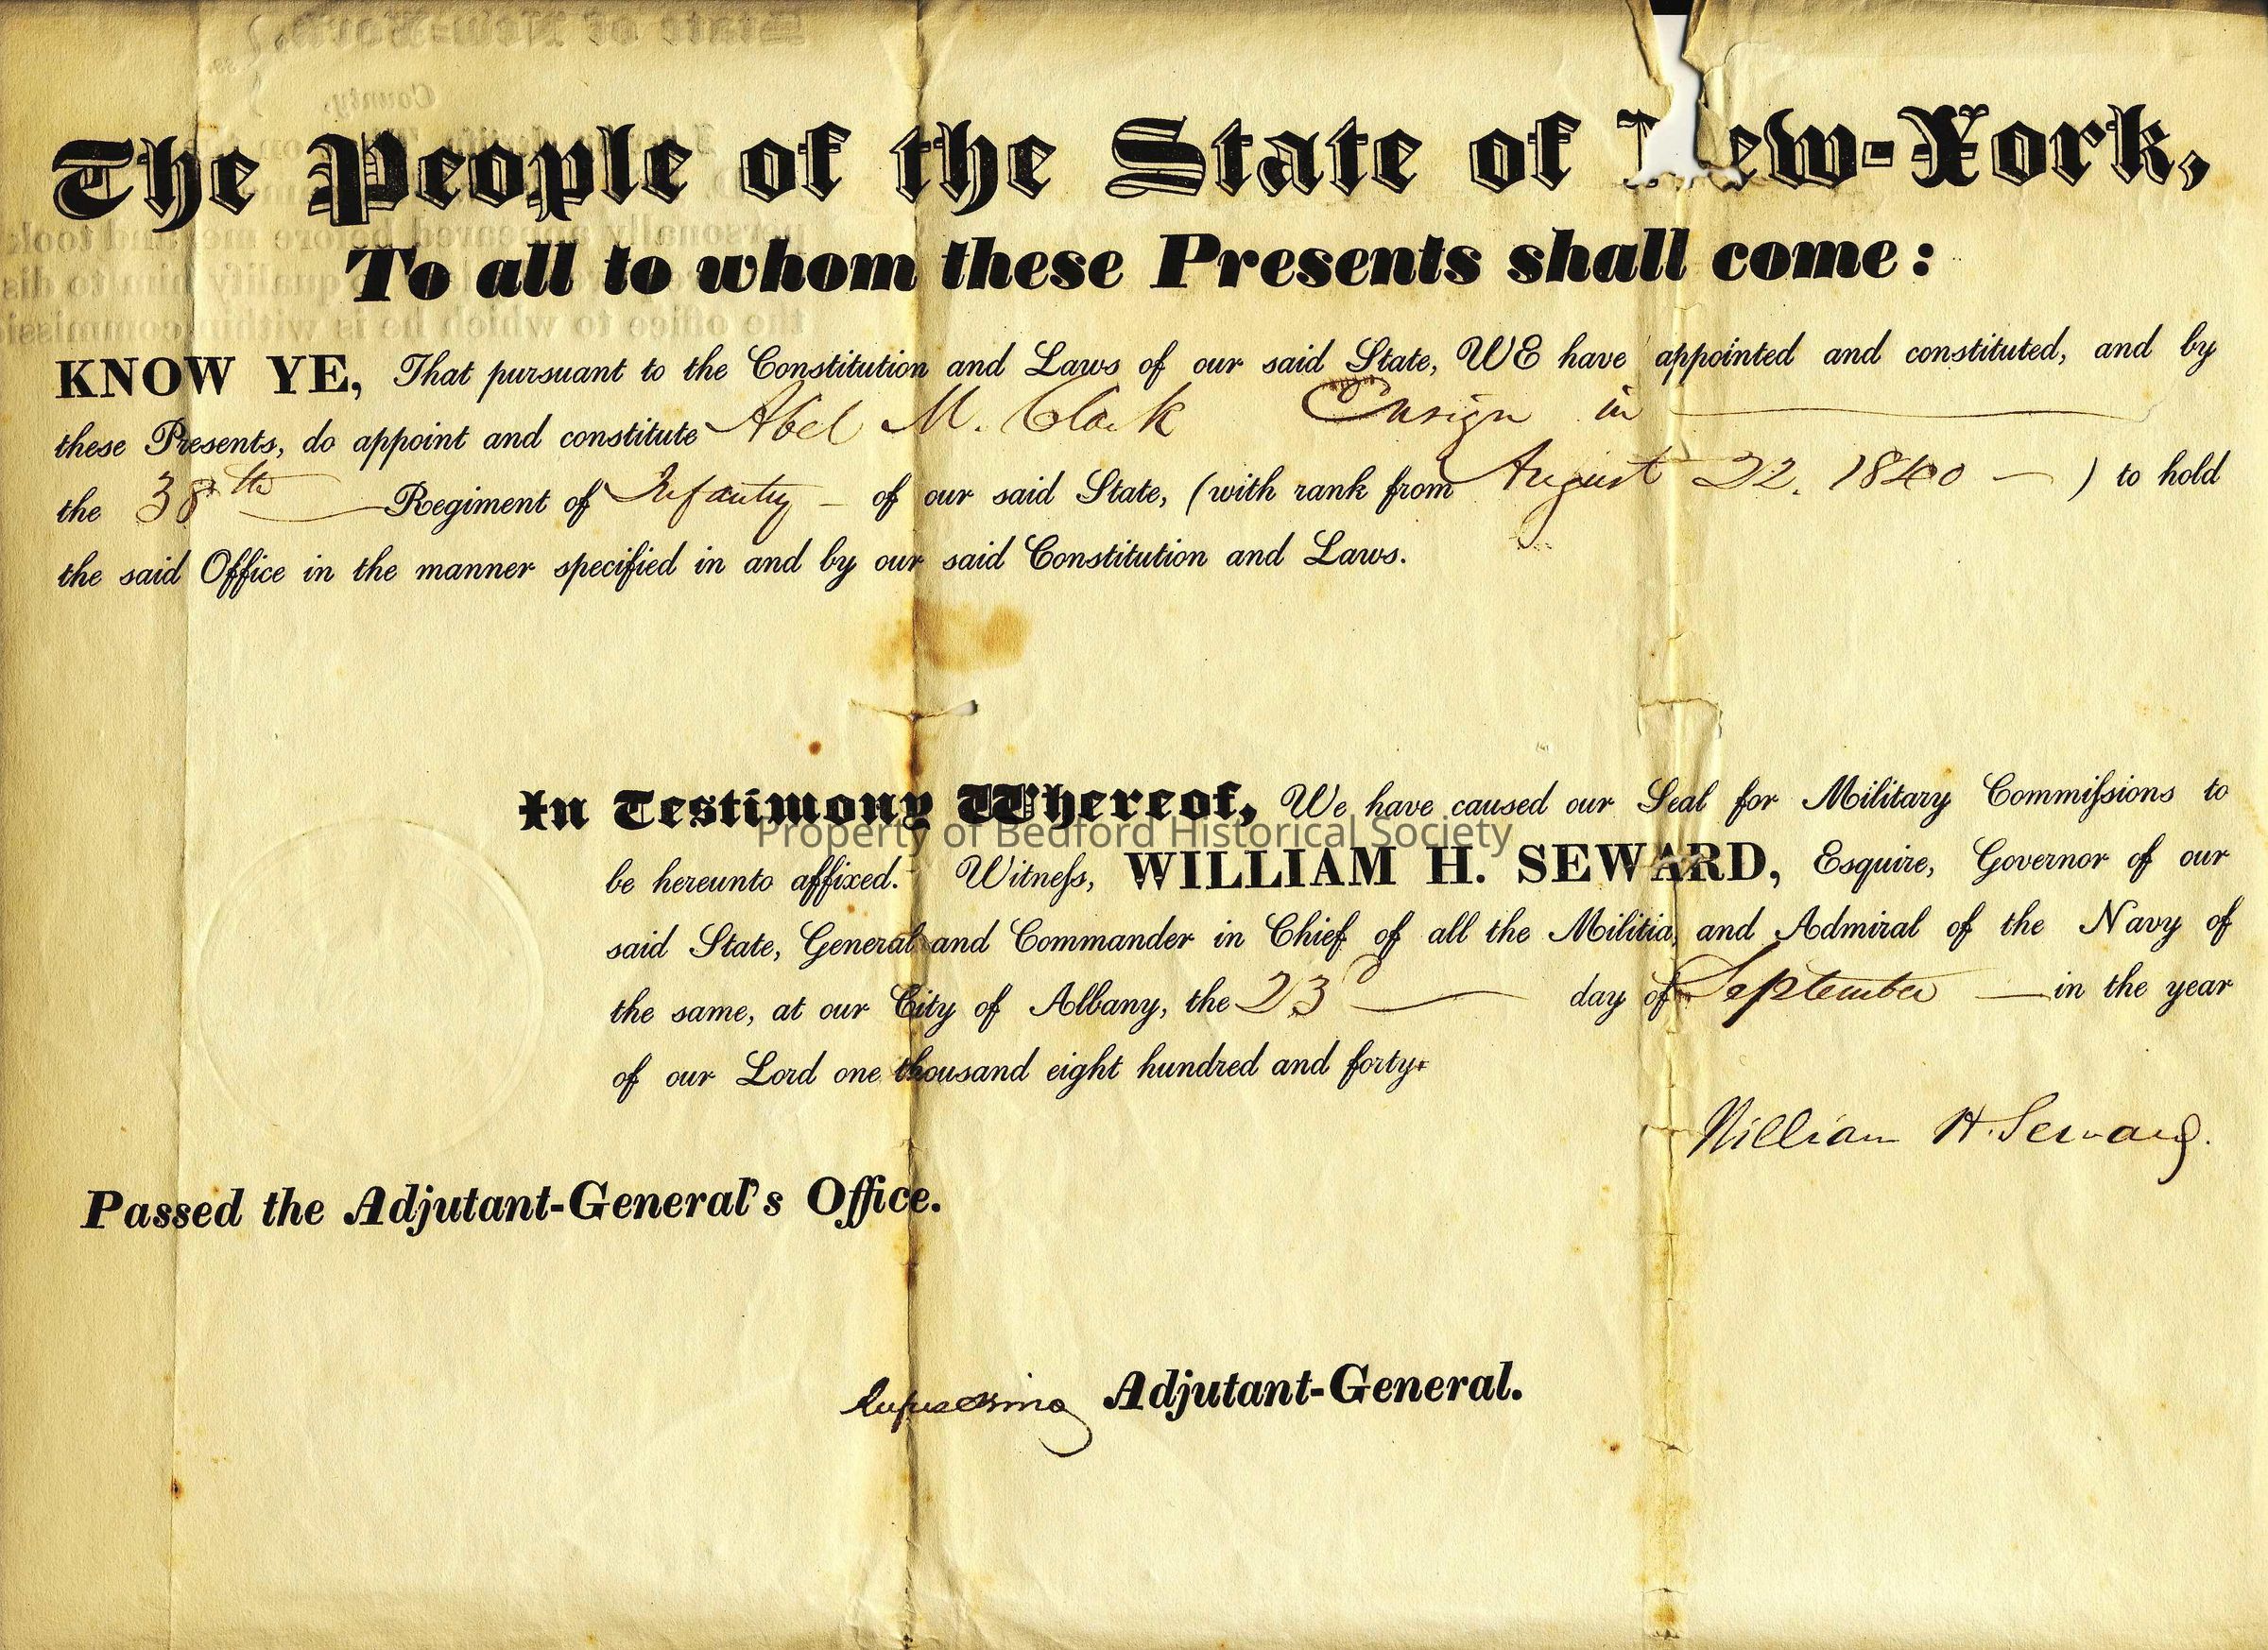 The People of the State of New-York,
To all to whom these Presents shall come:
KNOW YE, That pursuant to the Constitution and Laws of our said State, WE have appointed and constituted, and by
these Presents, do appoint and constitute Abel M. Clark Ensign in
the 38th Regiment of Infantry of our said State, (with rank from August 22. 1840 ) to hold
the said Office in the manner specified in and by our said Constitution and Laws.
In Testimony Whereof, We have caused our Seal for Military Commiſsions to
Property of Bedford Historical Society
be hereunto affixed. Witneſs, WILLIAM H. SEWARD, Esquire, Governor of our
said State, General and Commander in Chief of all the Militia, and Admiral of the Navy of
the same, at our City of Albany, the 23d day of September in the year
of our Lord one thousand eight hundred and forty.
William H. Seward.
Passed the Adjutant-General's Office.
Rufus King Adjutant-General.